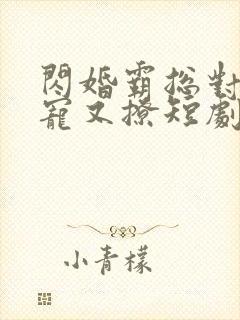 閃婚霸總對
寵又撩短劇
小青檬